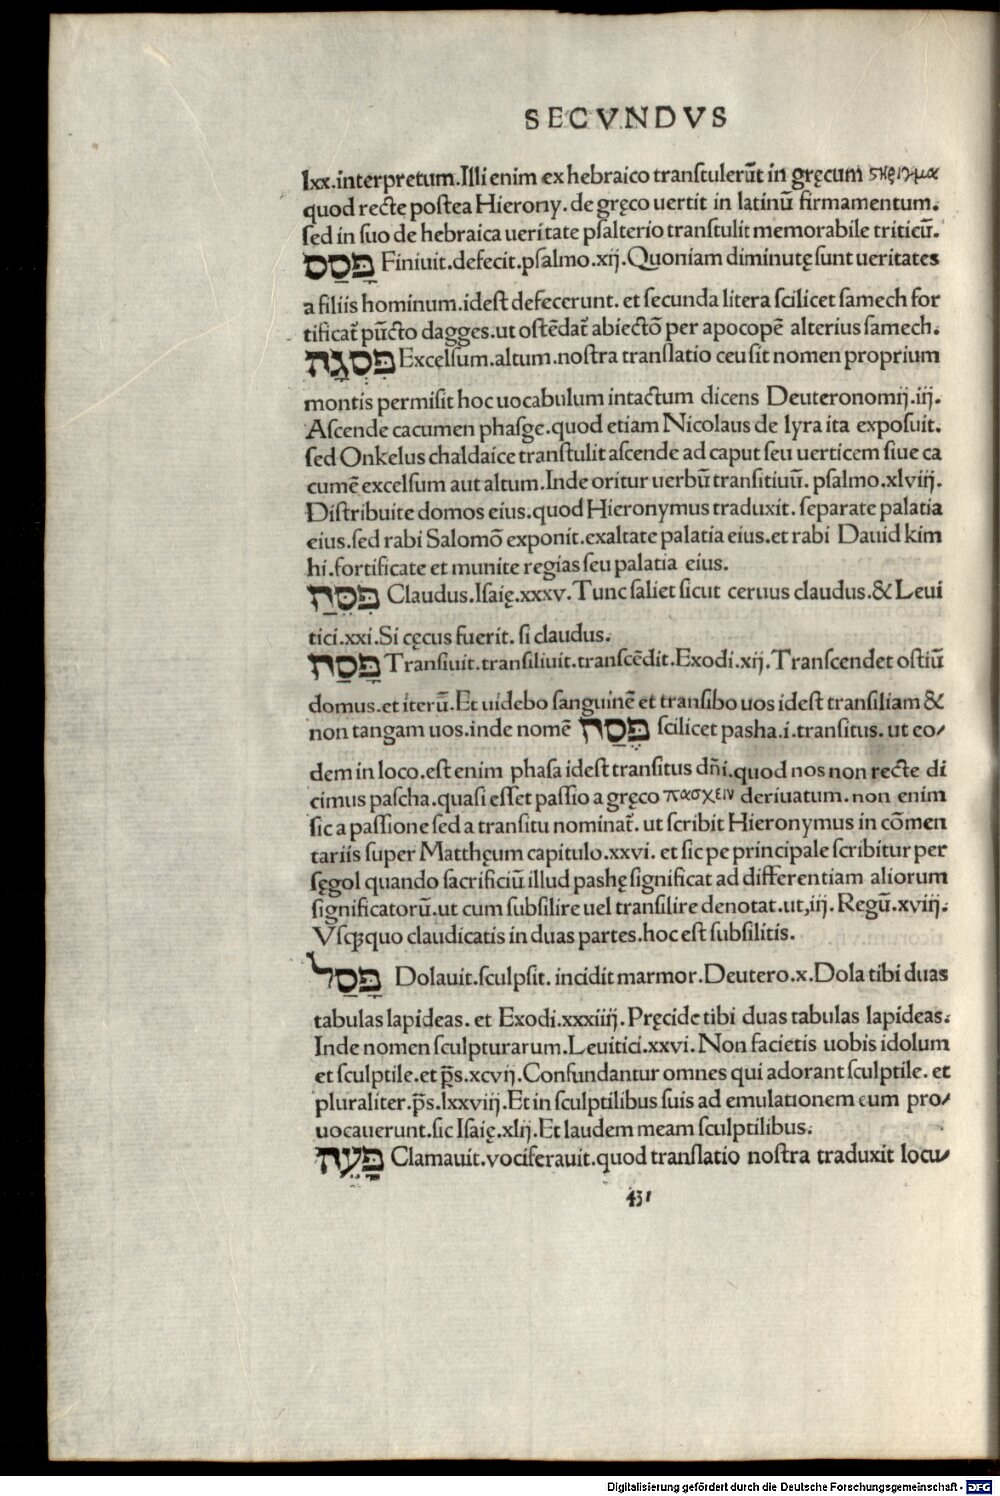 SECVNDVS
lxx.interpretum.Illi enim ex hebraico transtulerūt in gręcum
quod recte postea Hierony. de gręco uertit in latinū firmamentum.
sed in suo de hebraica ueritate psalterio transtulit memorabile triticū.
פָּסַס Finiuit.defecit.psalmo.xij.Quoniam diminutę sunt ueritates
a filiis hominum.idest defecerunt. et secunda litera scilicet samech for
tificat᷑ pūcto dagges.ut ostēdat᷑ abiectō per apocopē alterius samech.
פִּסְגָּה Excelsum.altum.nostra translatio ceu sit nomen proprium
montis permisit hoc uocabulum intactum dicens Deuteronomij.iij.
Ascende cacumen phasge.quod etiam Nicolaus de lyra ita exposuit.
sed Onkelus chaldaice transtulit ascende ad caput seu uerticem siue ca
cumē excelsum aut altum.Inde oritur uerbū transitiuū. psalmo.xlviij.
Distribuite domos eius.quod Hieronymus traduxit. separate palatia
eius.sed rabi Salomō exponit.exaltate palatia eius.et rabi Dauid kim
hi.fortificate et munite regias seu palatia eius.
פִּסֵּחַ Claudus.Isaię.xxxv.Tunc saliet sicut ceruus claudus.& Leui
tici.xxi.Si cęcus fuerit. si claudus.
פָּסַח Transiuit.transiliuit.transcēdit.Exodi.xij.Transcendet ostiū
domus.et iterū.Et uidebo sanguinē et transibo uos idest transiliam &
non tangam uos.inde nomē פֶּסַח scilicet pasha.i.transitus. ut eo/
dem in loco.est enim phasa idest transitus dn̄i.quod nos non recte di
cimus pascha.quasi esset passio a gręco πασχειν deriuatum.non enim
sic a passione sed a transitu nominat᷑. ut scribit Hieronymus in cōmen
tariis super Matthęum capitulo.xxvi. et sic pe principale scribitur per
sęgol quando sacrificiū illud pashę significat ad differentiam aliorum
significatorū.ut cum subsilire uel transilire denotat.ut,iij. Regū.xviij.
Vsqꝫquo claudicatis in duas partes.hoc est subsilitis.
פָּסַל Dolauit.sculpsit. incidit marmor.Deutero.x.Dola tibi duas
tabulas lapideas. et Exodi.xxxiiij.Pręcide tibi duas tabulas lapideas.
Inde nomen sculpturarum.Leuitici.xxvi.Non facietis uobis idolum
et sculptile.et p̄s.xcvij.Confundantur omnes qui adorant sculptile. et
pluraliter.p̄s.lxxviij.Et in sculptilibus suis ad emulationem eum pro/
uocauerunt.sic Isaię.xlij.Et laudem meam sculptilibus.
פָּעָה Clamauit.vociferauit.quod translatio nostra traduxit locu/
431
Digitalisierung gefördert durch die Deutsche Forschungsgemeinschaft - DFG